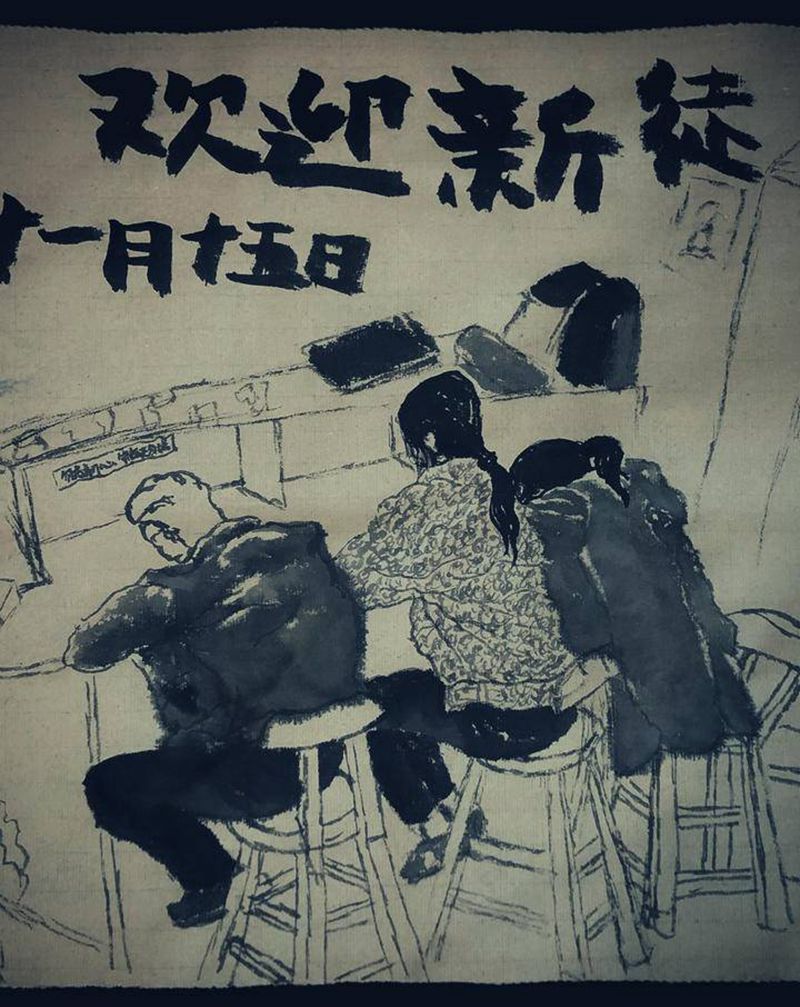 欢迎新徒
十一月十五日